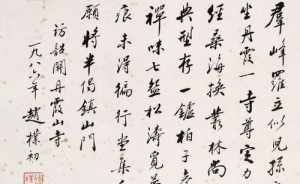 群峰羅立似兒孫
坐丹霞一寺尊定力
經桑海換叢林尚
典型存一鑪柏子參
禪味七盌松濤覓
痕未得徧行堂集
願將半偈鎮山門
訪韶關丹霞山寺
一九八六年 趙樸初